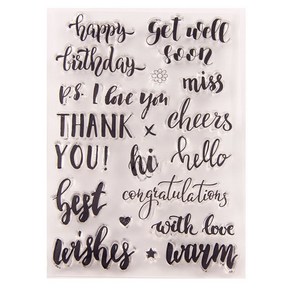 happy
birthday
get well
soon
miss
p.s. I love you
THANK x
YOU!
cheers
hi
hello
congratulations
best
wishes
with love
warm